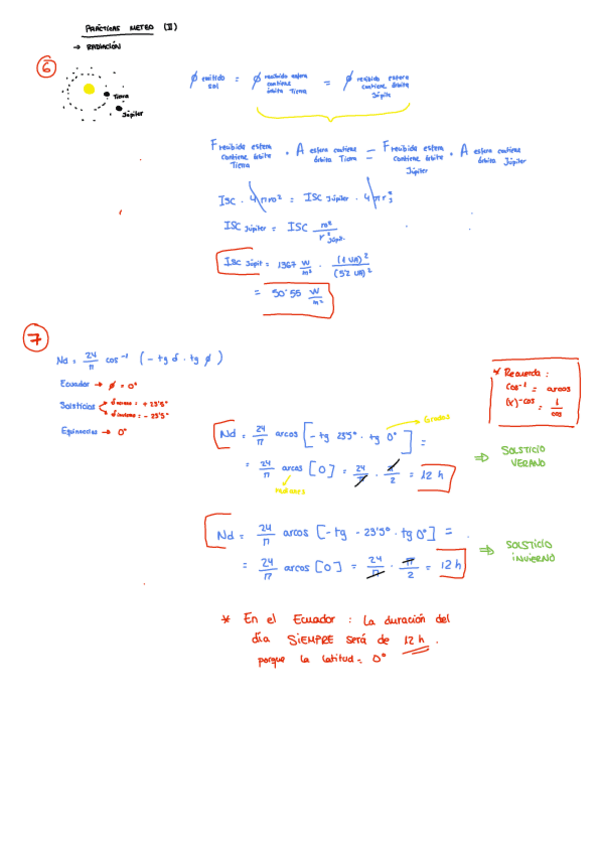 PRÁCTICAS METEO (II)
→ RADIACIÓN
6
Tierra
Júpiter
ϕ emitido sol = ϕ recibido esfera contiene órbita Tierra = ϕ recibido esfera contiene órbita Júpit
F recibida esfera contiene órbita Tierra · A esfera contiene órbita Tierra = F recibida esfera contiene órbita Júpiter · A esfera contiene órbita Júpiter
ISC · 4πro² = ISC Júpiter · 4πrj²
ISC Júpiter = ISC ro² / r² Júpit.
ISC Júpit = 1367 W/m² · (1 UA)² / (5'2 UA)²
= 50'55 W/m²
7
Nd = 24/π cos⁻¹ (- tg δ · tg ϕ)
Ecuador → ϕ = 0°
Solsticios → δ verano = + 23'5°
→ δ invierno = - 23'5°
Equinoccios → 0°
* Recuerda:
cos⁻¹ = arcos
(x)⁻cos = 1/cos
Nd = 24/π arcos [- tg 23'5° · tg 0°] =
Grados
= 24/π arcos [0] = 24/π · π/2 = 12 h
⇒ SOLSTICIO VERANO
Nd = 24/π arcos [- tg - 23'5° · tg 0°] =
= 24/π arcos [0] = 24/π · π/2 = 12 h
⇒ SOLSTICIO INVIERNO
* En el Ecuador : La duración del
día SIEMPRE será de 12 h.
porque la latitud = 0°